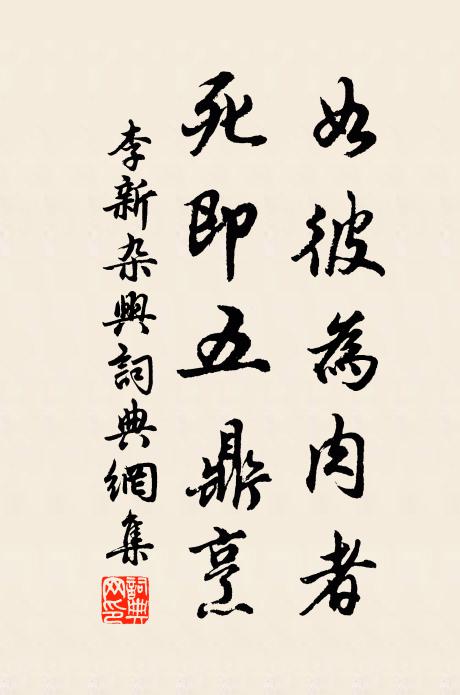 如彼為肉者
死即五鼎烹
李新杂興詞典網集
詞典网印